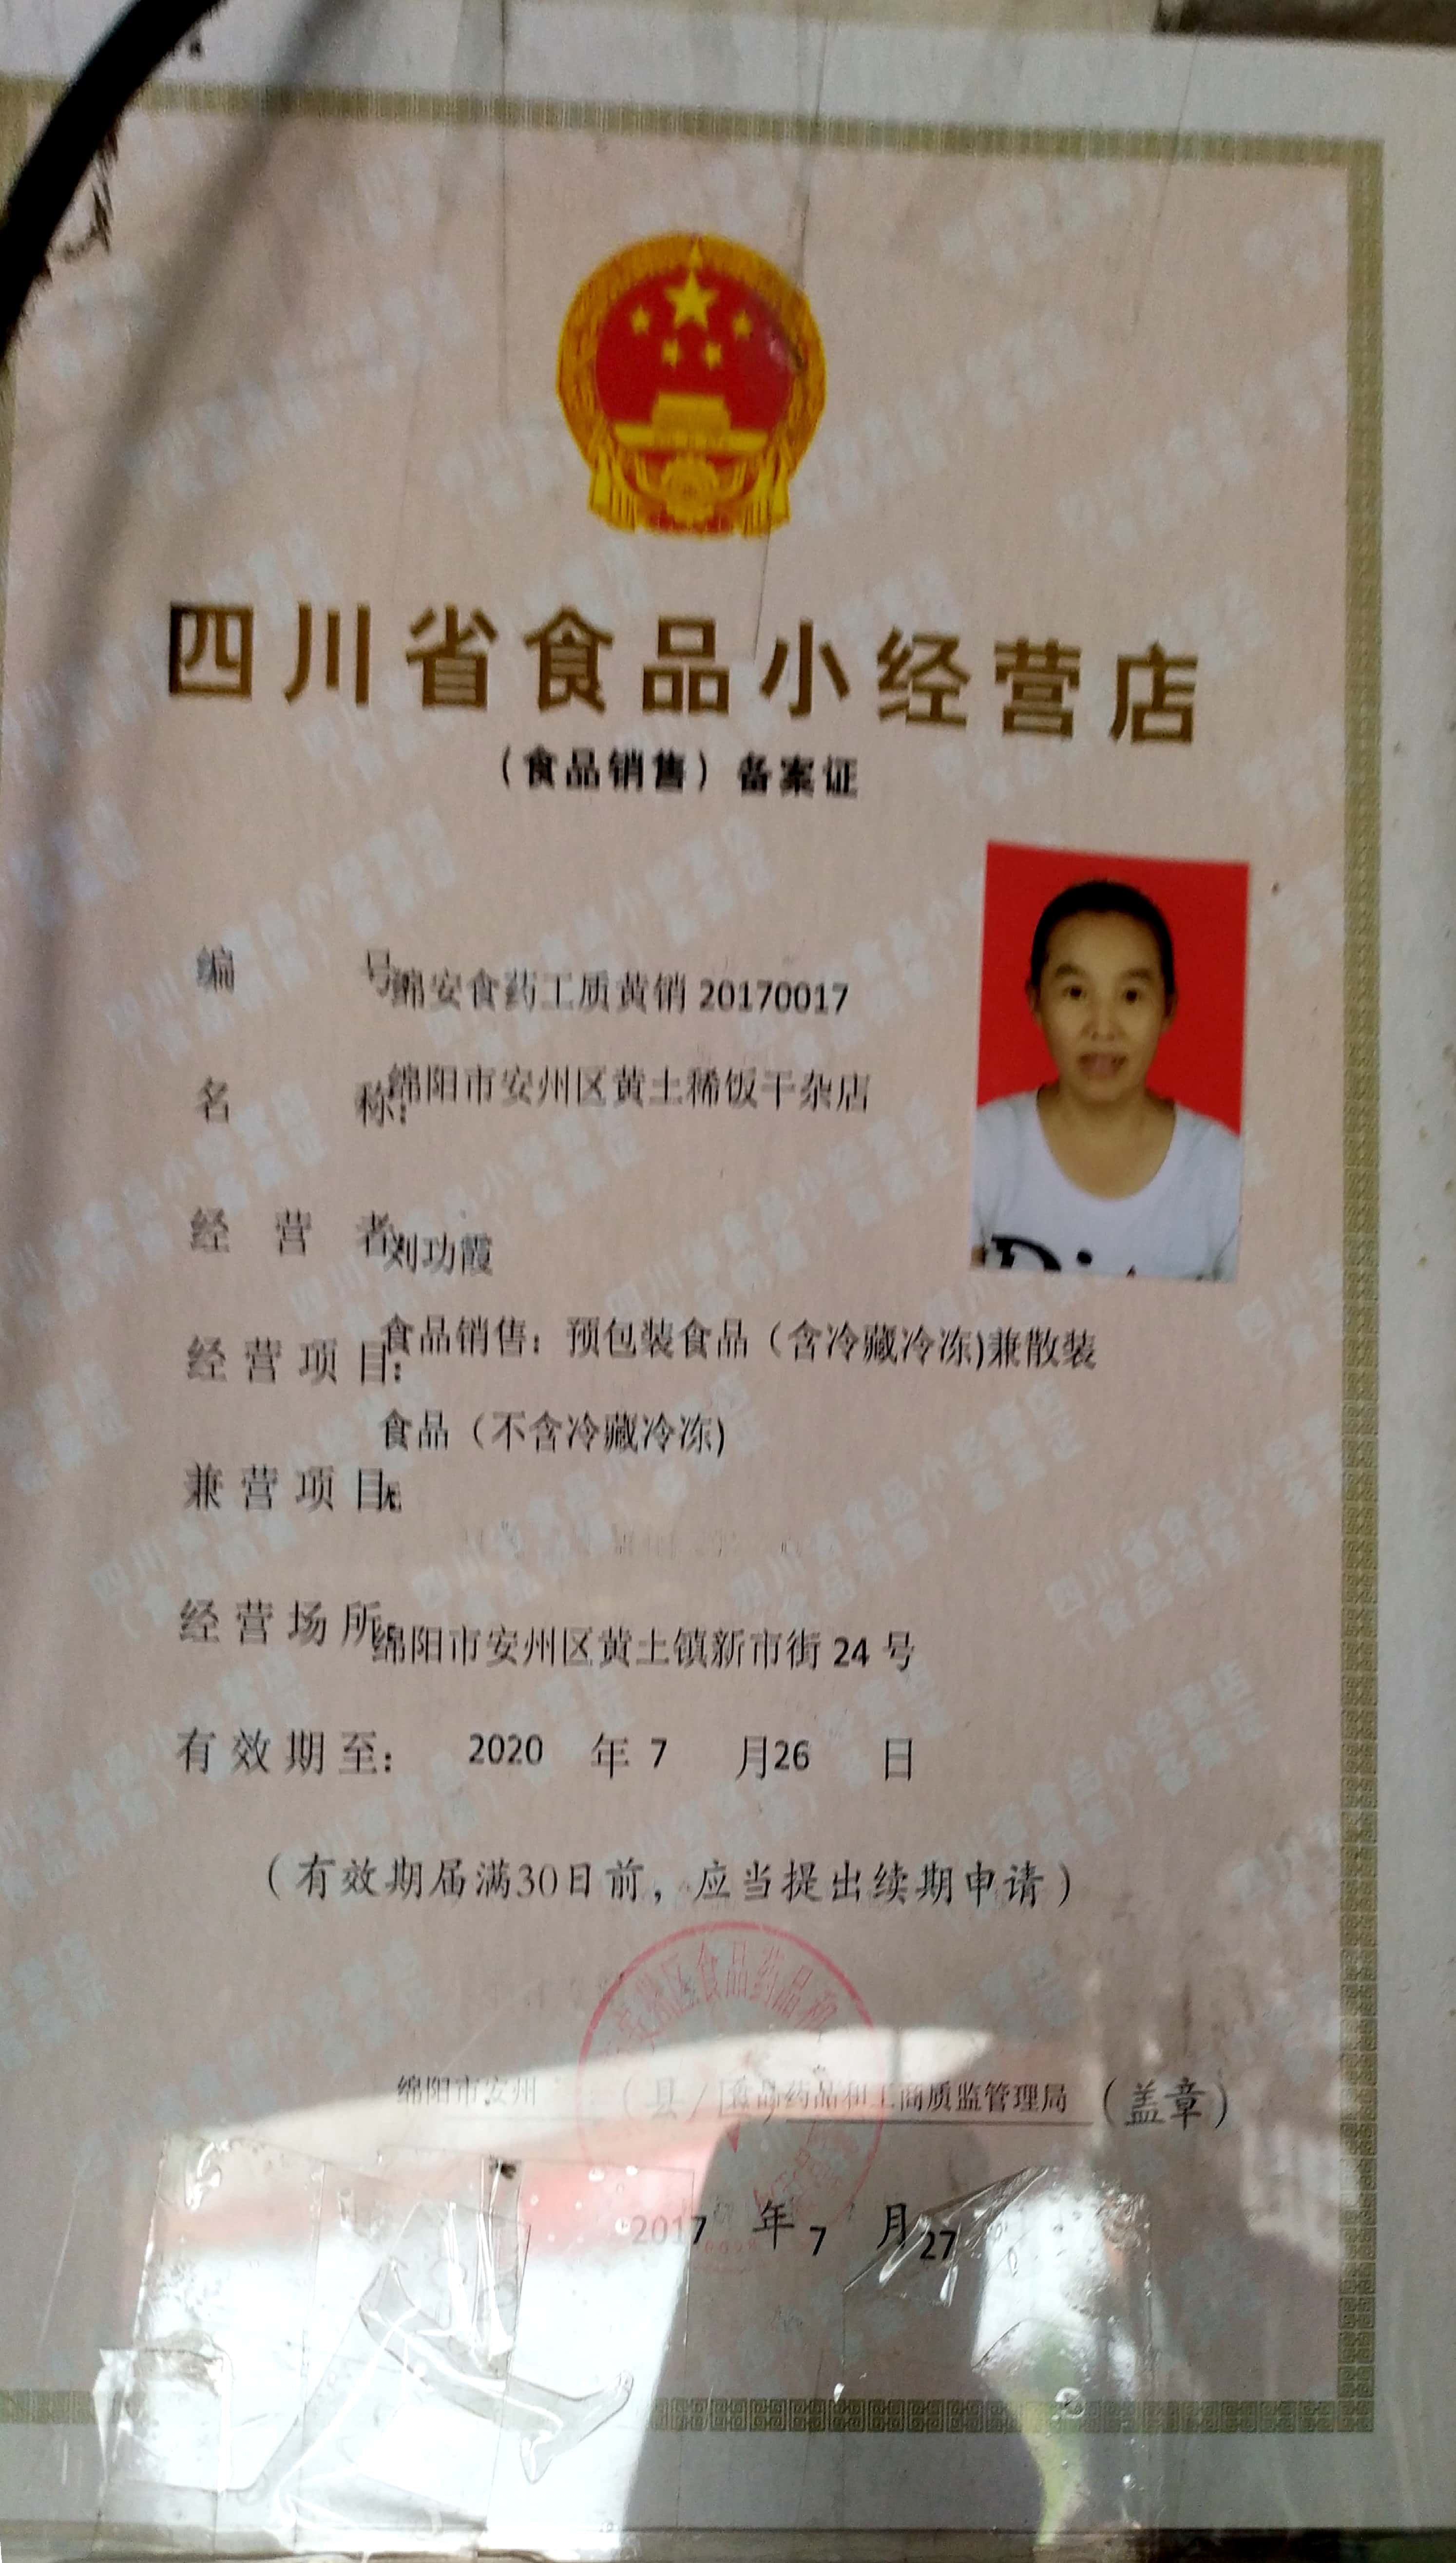 四川省食品小经营店
（食品销售）备案证
编 号 绵安食药工质黄销 20170017
名 称: 绵阳市安州区黄土稀饭干杂店
经 营 者 刘功霞
经营项目: 食品销售：预包装食品（含冷藏冷冻)兼散装
食品（不含冷藏冷冻)
兼营项目 无
经营场所 绵阳市安州区黄土镇新市街 24 号
有效期至: 2020 年 7 月26 日
（有效期届满30日前，应当提出续期申请）
绵阳市安州 (县/区)食品药品和工商质监管理局（盖章）
2017 年 7 月 27